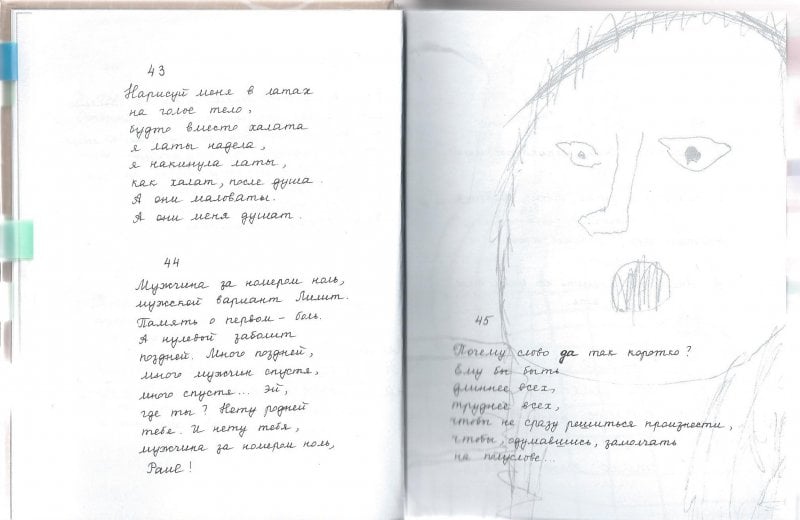 43
Нарисуй меня в латах
на голое тело,
будто вместо халата
я латы надела,
я накинула латы,
как халат, после душа.
А они маловаты.
А они меня душат.
44
Мужчина за номером ноль,
мужской вариант Лилит.
Память о первом – боль.
А нулевой заболит
поздней. Много поздней,
много мужчин спустя,
много спустя... Эй,
где ты? Нету родней
тебе. И нету тебя,
мужчина за номером ноль,
45
Почему слово да так коротко?
ему бы быть
длиннее всех,
труднее всех,
чтоб не сразу решиться произнести,
чтобы, одумавшись, замолчать
на полуслове...